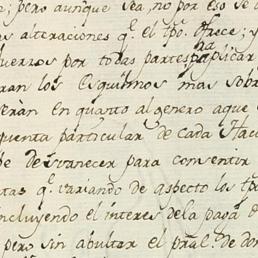 ; pero aunque sea, no por eso se d
as alteraciones q.e el tpo. ofrece; y
uerros por todas partes para aplicar
ran los Esquilmos mas sobre
eràn en quanto al genero aque
quenta particular de cada Hace
be desvanecer para consentir
tas q.e variando de aspecto los tp
ncluyendo el interes dela paga d
pero sin abultar el pral. de don